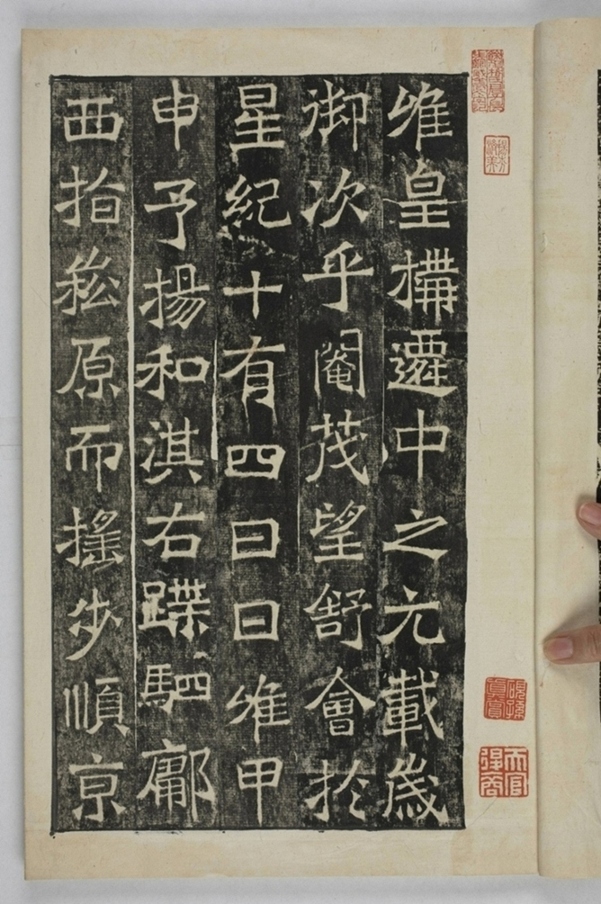 惟皇構遷中之元載歲
御次乎閹茂望舒會於
星紀十有四日日惟甲
申予揚和淇右蹀駟鄘
西指崧原而搖步順京